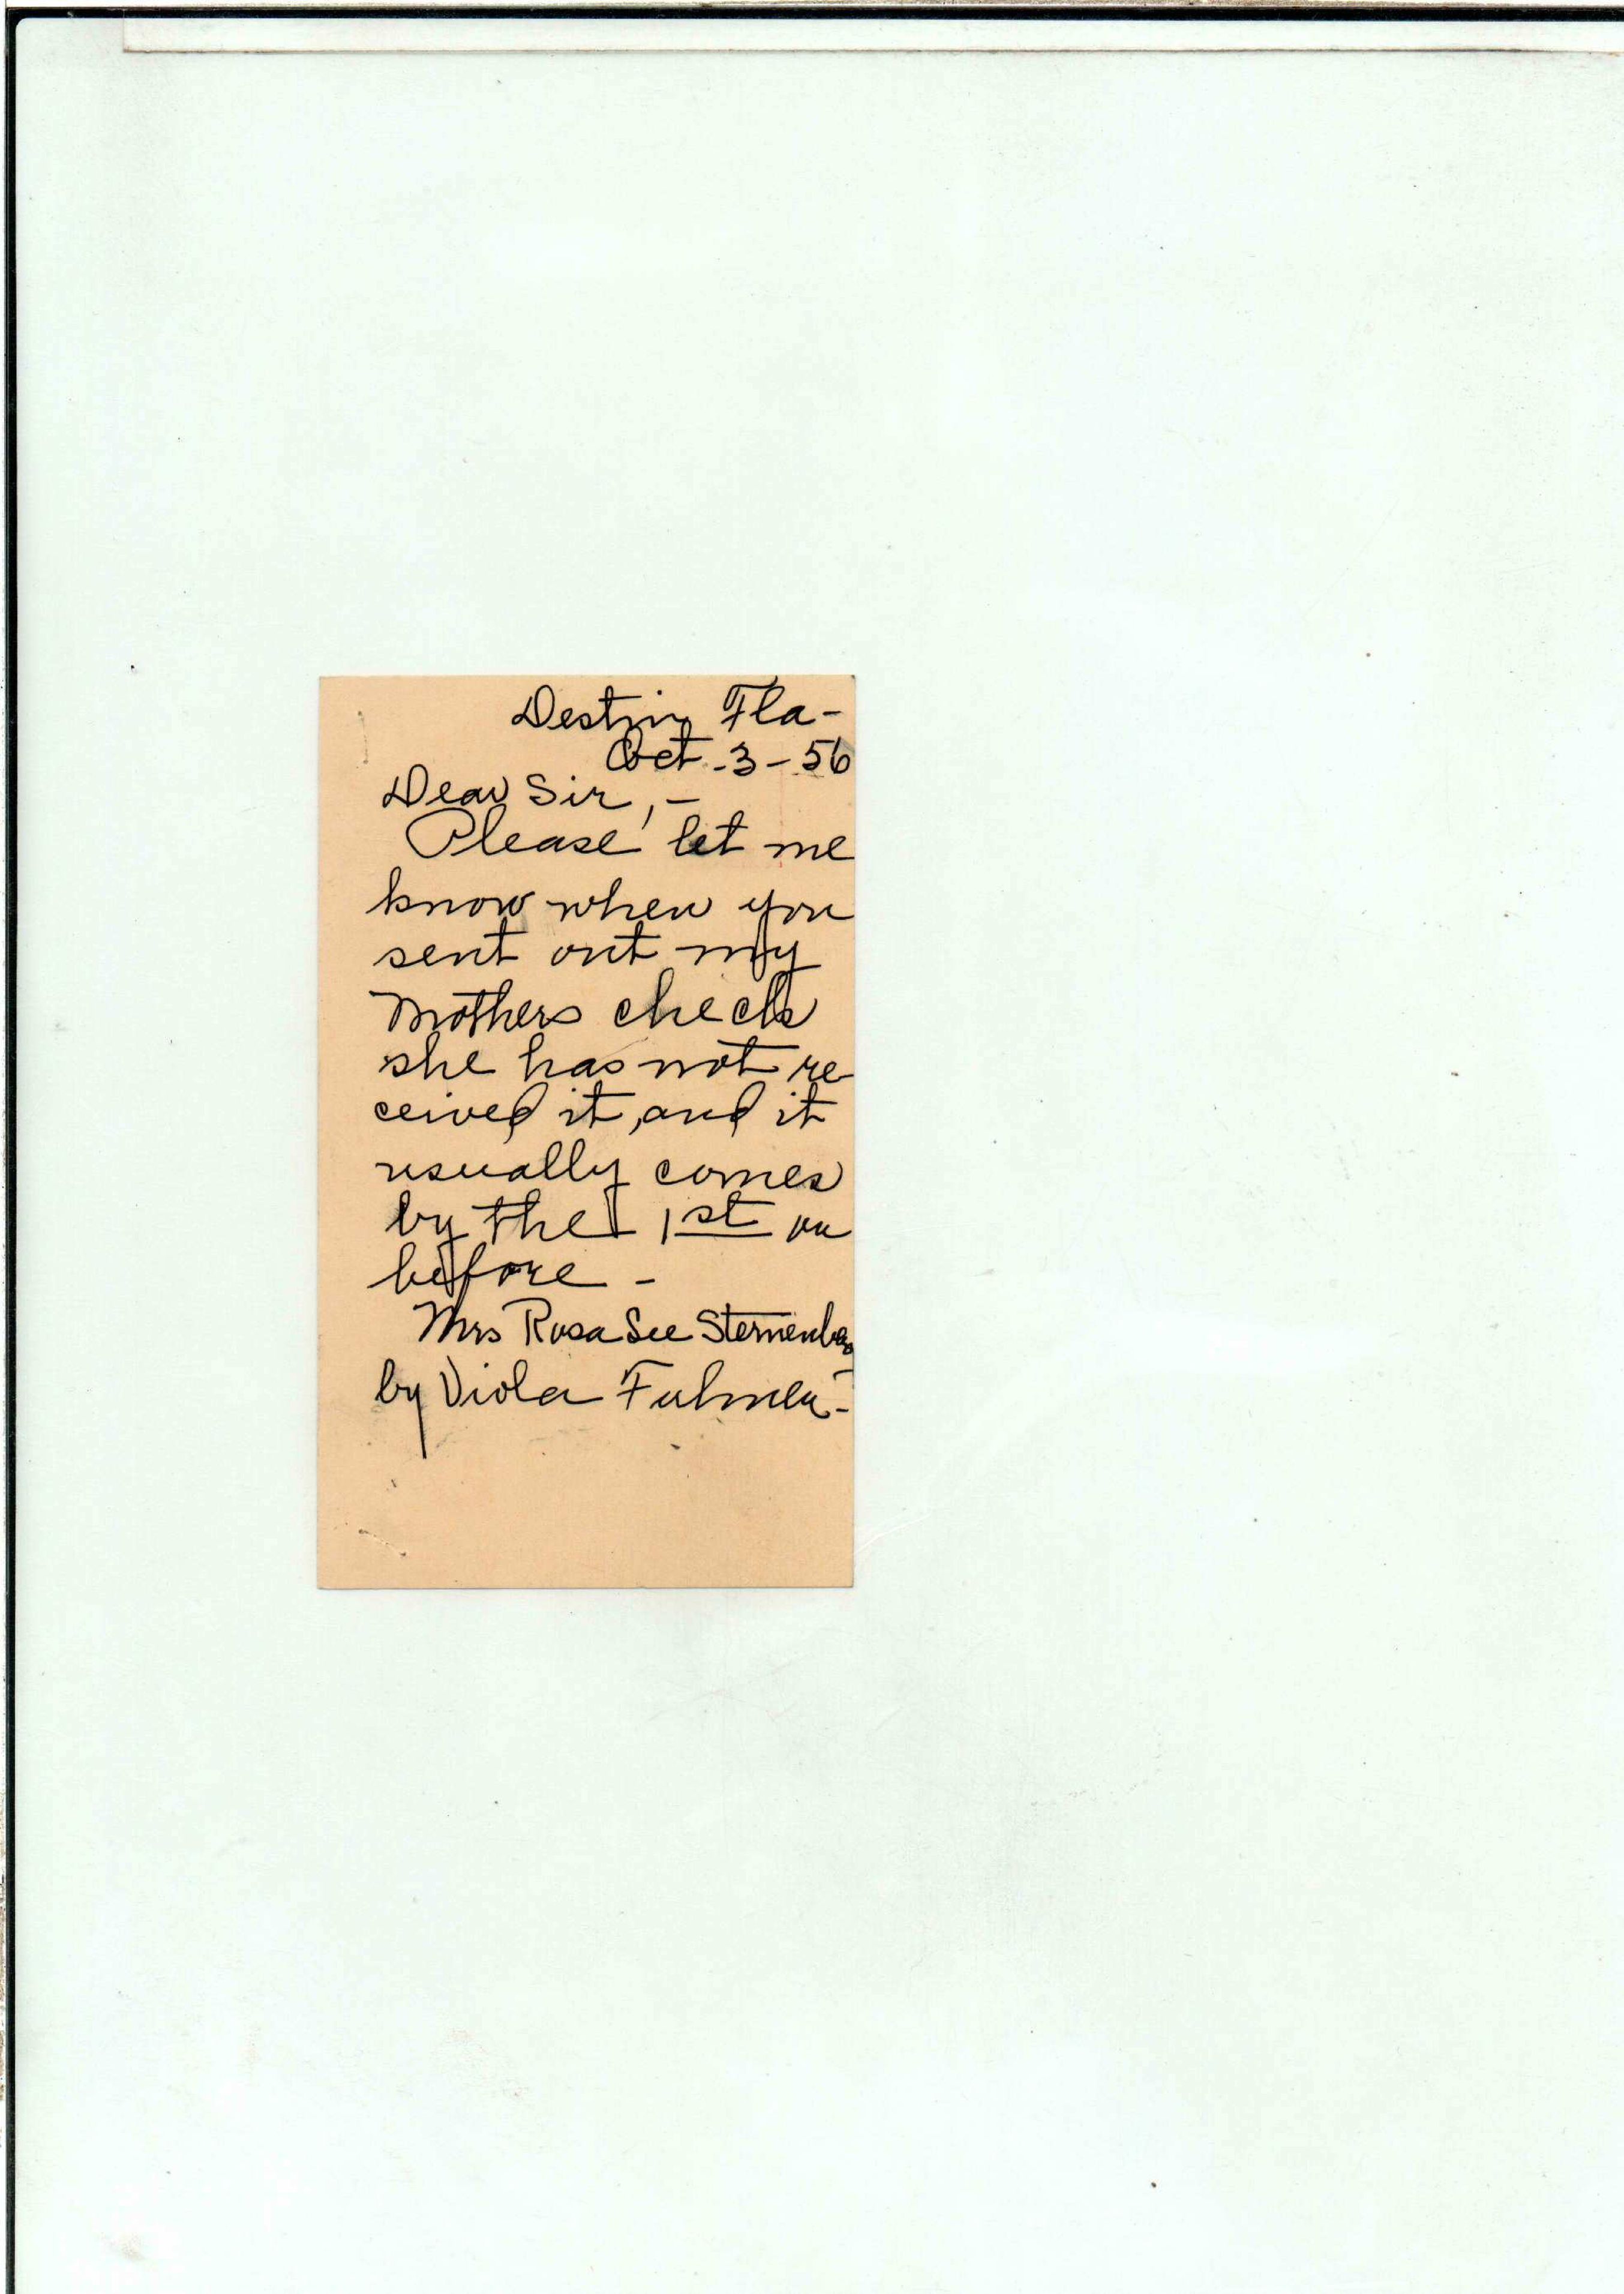 Destin, Fla-
Oct-3-56
Dear Sir,-
Please let me
know when you
sent out my
Mothers check
she has not re
ceived it, and it
usually comes
by the 1st or
before -
Mrs Rosa Lee
by Viola Fulmer-